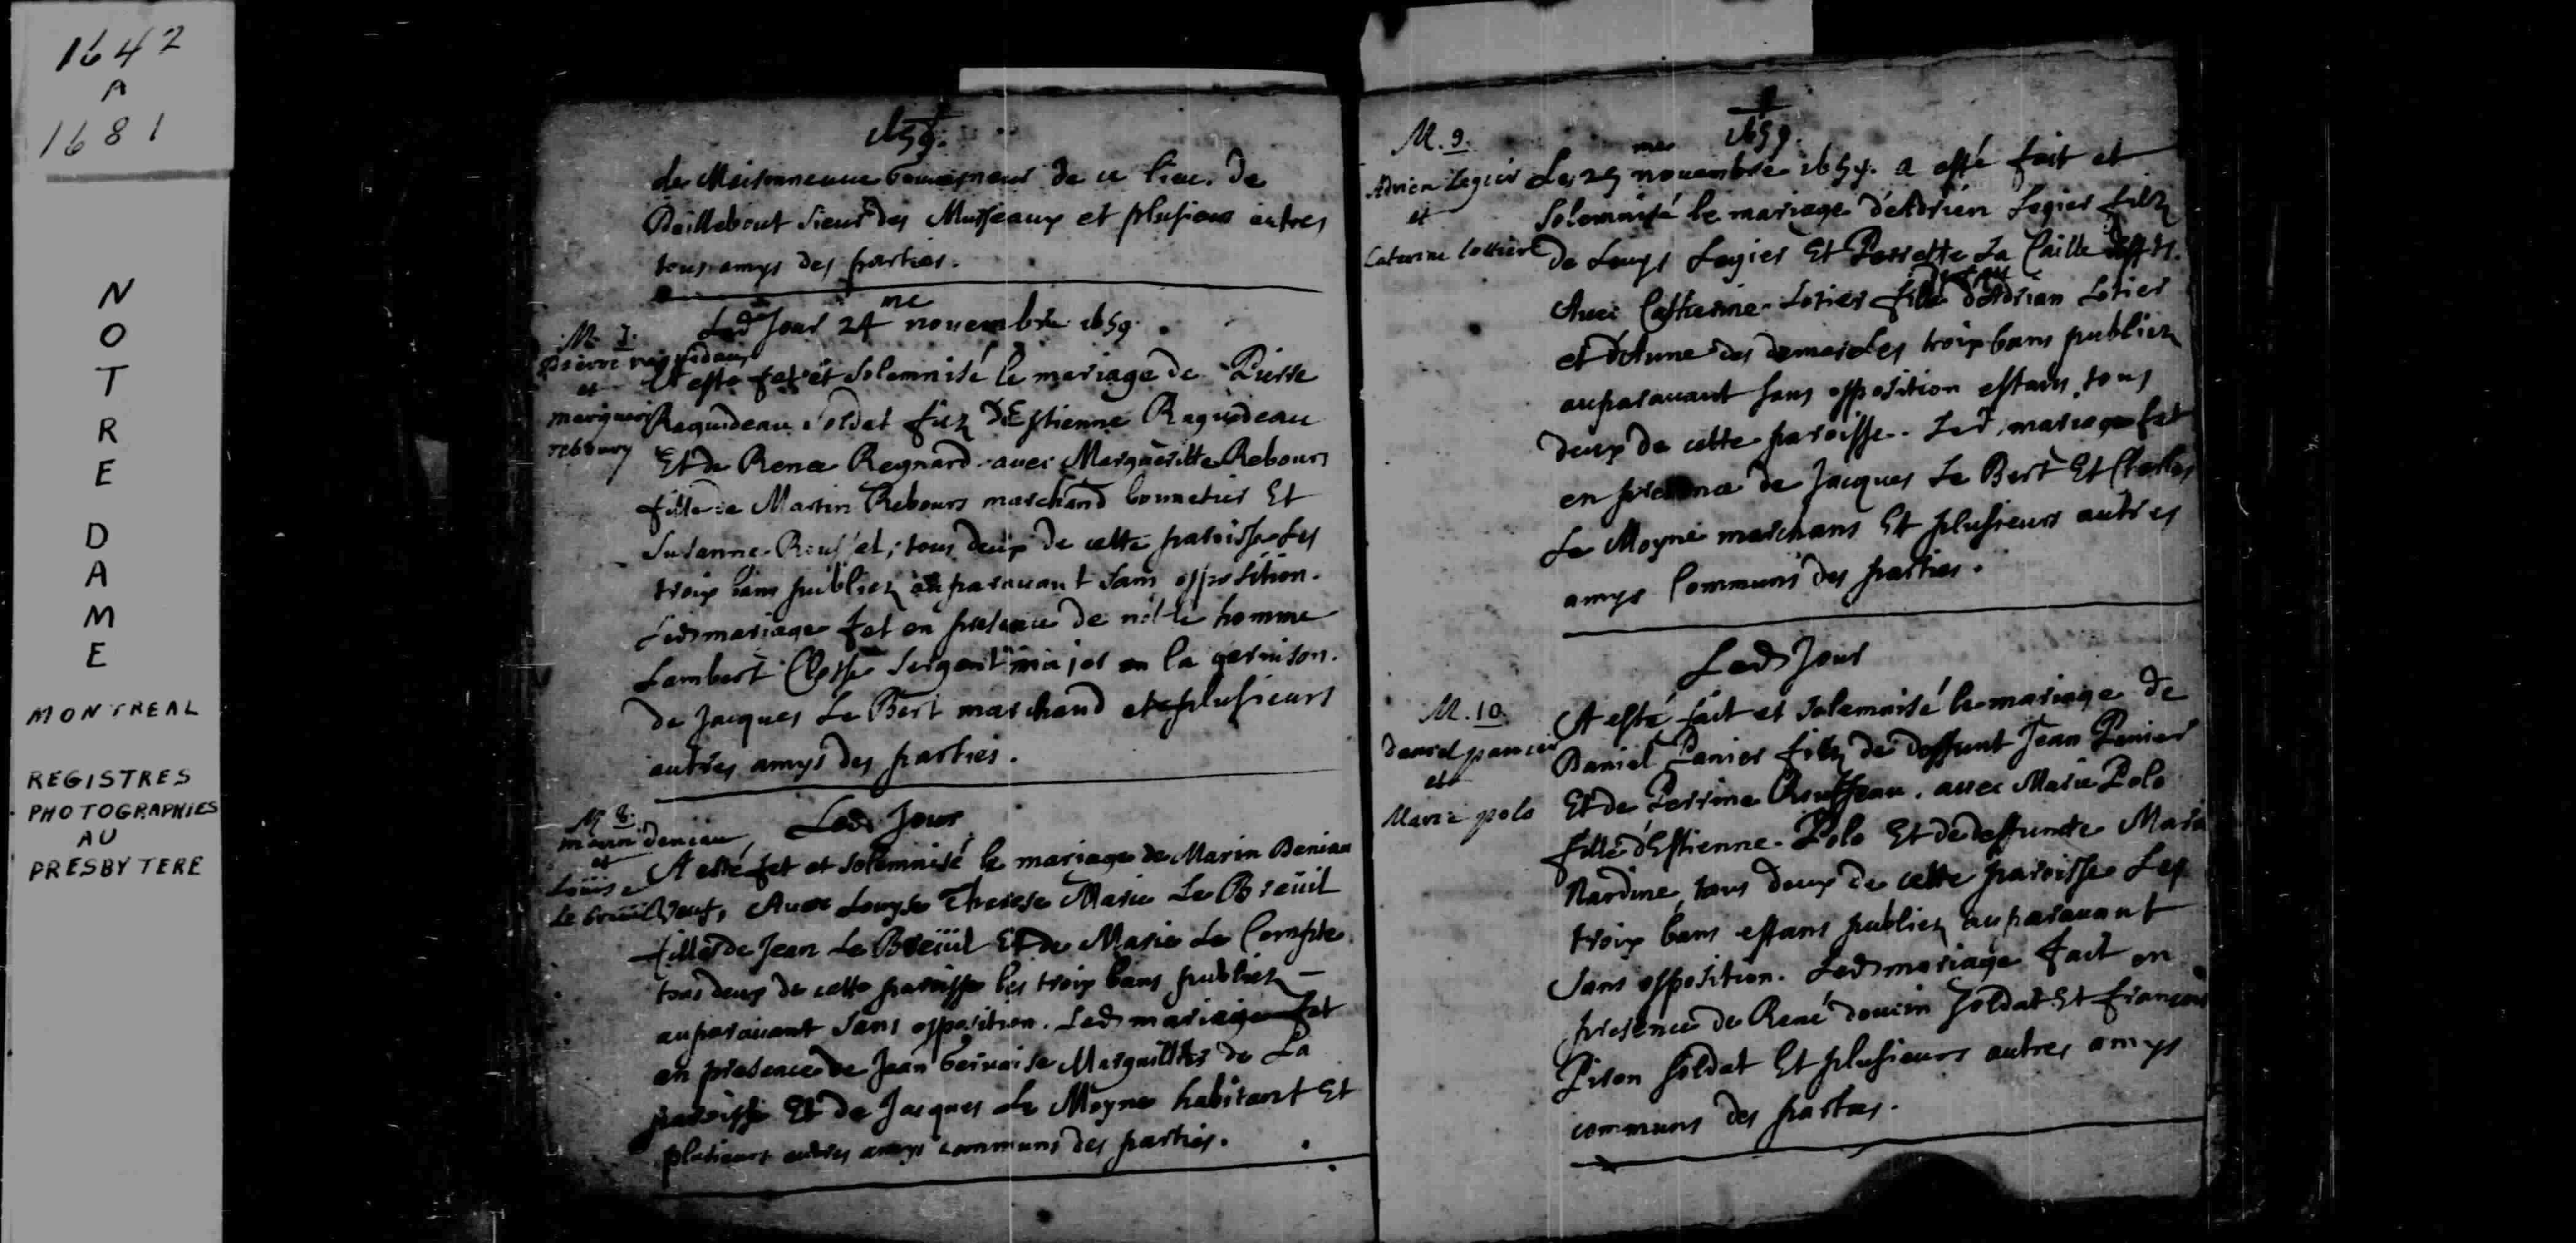 1642
A
1681
NOTRE
DAME
MONTREAL
REGISTRES
PHOTOGRAPHIES
AU
PRESBYTERE
1659.
de Maisonneuue Gouuerneur de ce lieu. De
Daillebout sieur des Musseaux et plusieurs autres
tous amys des parties.
M. 7.
Pierre raguideau
et
marguerit
rebours
Led Jour 24 me nouembre 1659.
A esté fet et solemnisé le mariage de Pierre
Raguideau soldat filz d'Estienne Raguideau
Et de Renee Reynard. auec Margueritte Rebours
fille de Martin Rebours marchand bonnetier Et
Susanne Rousset; tous deux de cette paroisse Les
trois bans publiez auparauant sans opposition.
Led mariage fet en presence de noble homme
Lambert Closse sergent major en la garnison.
de Jacques Le Bert marchand et plusieurs
autres amys des parties.
M 8.
marin deniau
et
Louise
le breüil
Led Jour
A esté fet et solemnisé le mariage de Marin Deniau
veuf, Auec Louyse Therese Marie Le Breüil
fille de Jean Le Breüil Et de Marie Le Compte
tous deux de cette paroisse les trois bans publiez -
auparauant sans opposition. Led mariage fet
en presence de Jean Geruaise Marguillier de La
paroisse Et de Jacques Le Moyne habitant Et
plusieurs autres amys communs des parties.
1659.
M. 9.
Adrien Legier
et
Caterine lottier
Le 25 me nouembre 1659. a esté fait et
solemnisé le mariage d'Adrien Legier filz
de Louys Legier Et Perrette La Caille
Auec Catherine Lotier fille d'Adrian Lotier
et d'Anne Les trois bans publiez
auparauant sans opposition estans tous
deux de cette paroisse. Led mariage fet
en presence de Jacques Le Bert Et Charles
Le Moyne marchans Et plusieurs autres
amys Communs des parties.
M. 10.
Daniel panier
et
Marie polo
Led Jour
A esté fait et solemnisé le mariage de
Daniel Panier filz de deffunt Jean Panier
Et de Perrine Rousseau. auec Marie Polo
fille d'Estienne Polo Et de deffuncte Marie
Nardine, tous deux de cette paroisse Les
trois bans estans publiez auparauant
sans opposition. Led mariage fait en
presence de René doucin soldat Et françois
Piron soldat Et plusieurs autres amys
communs des parties.